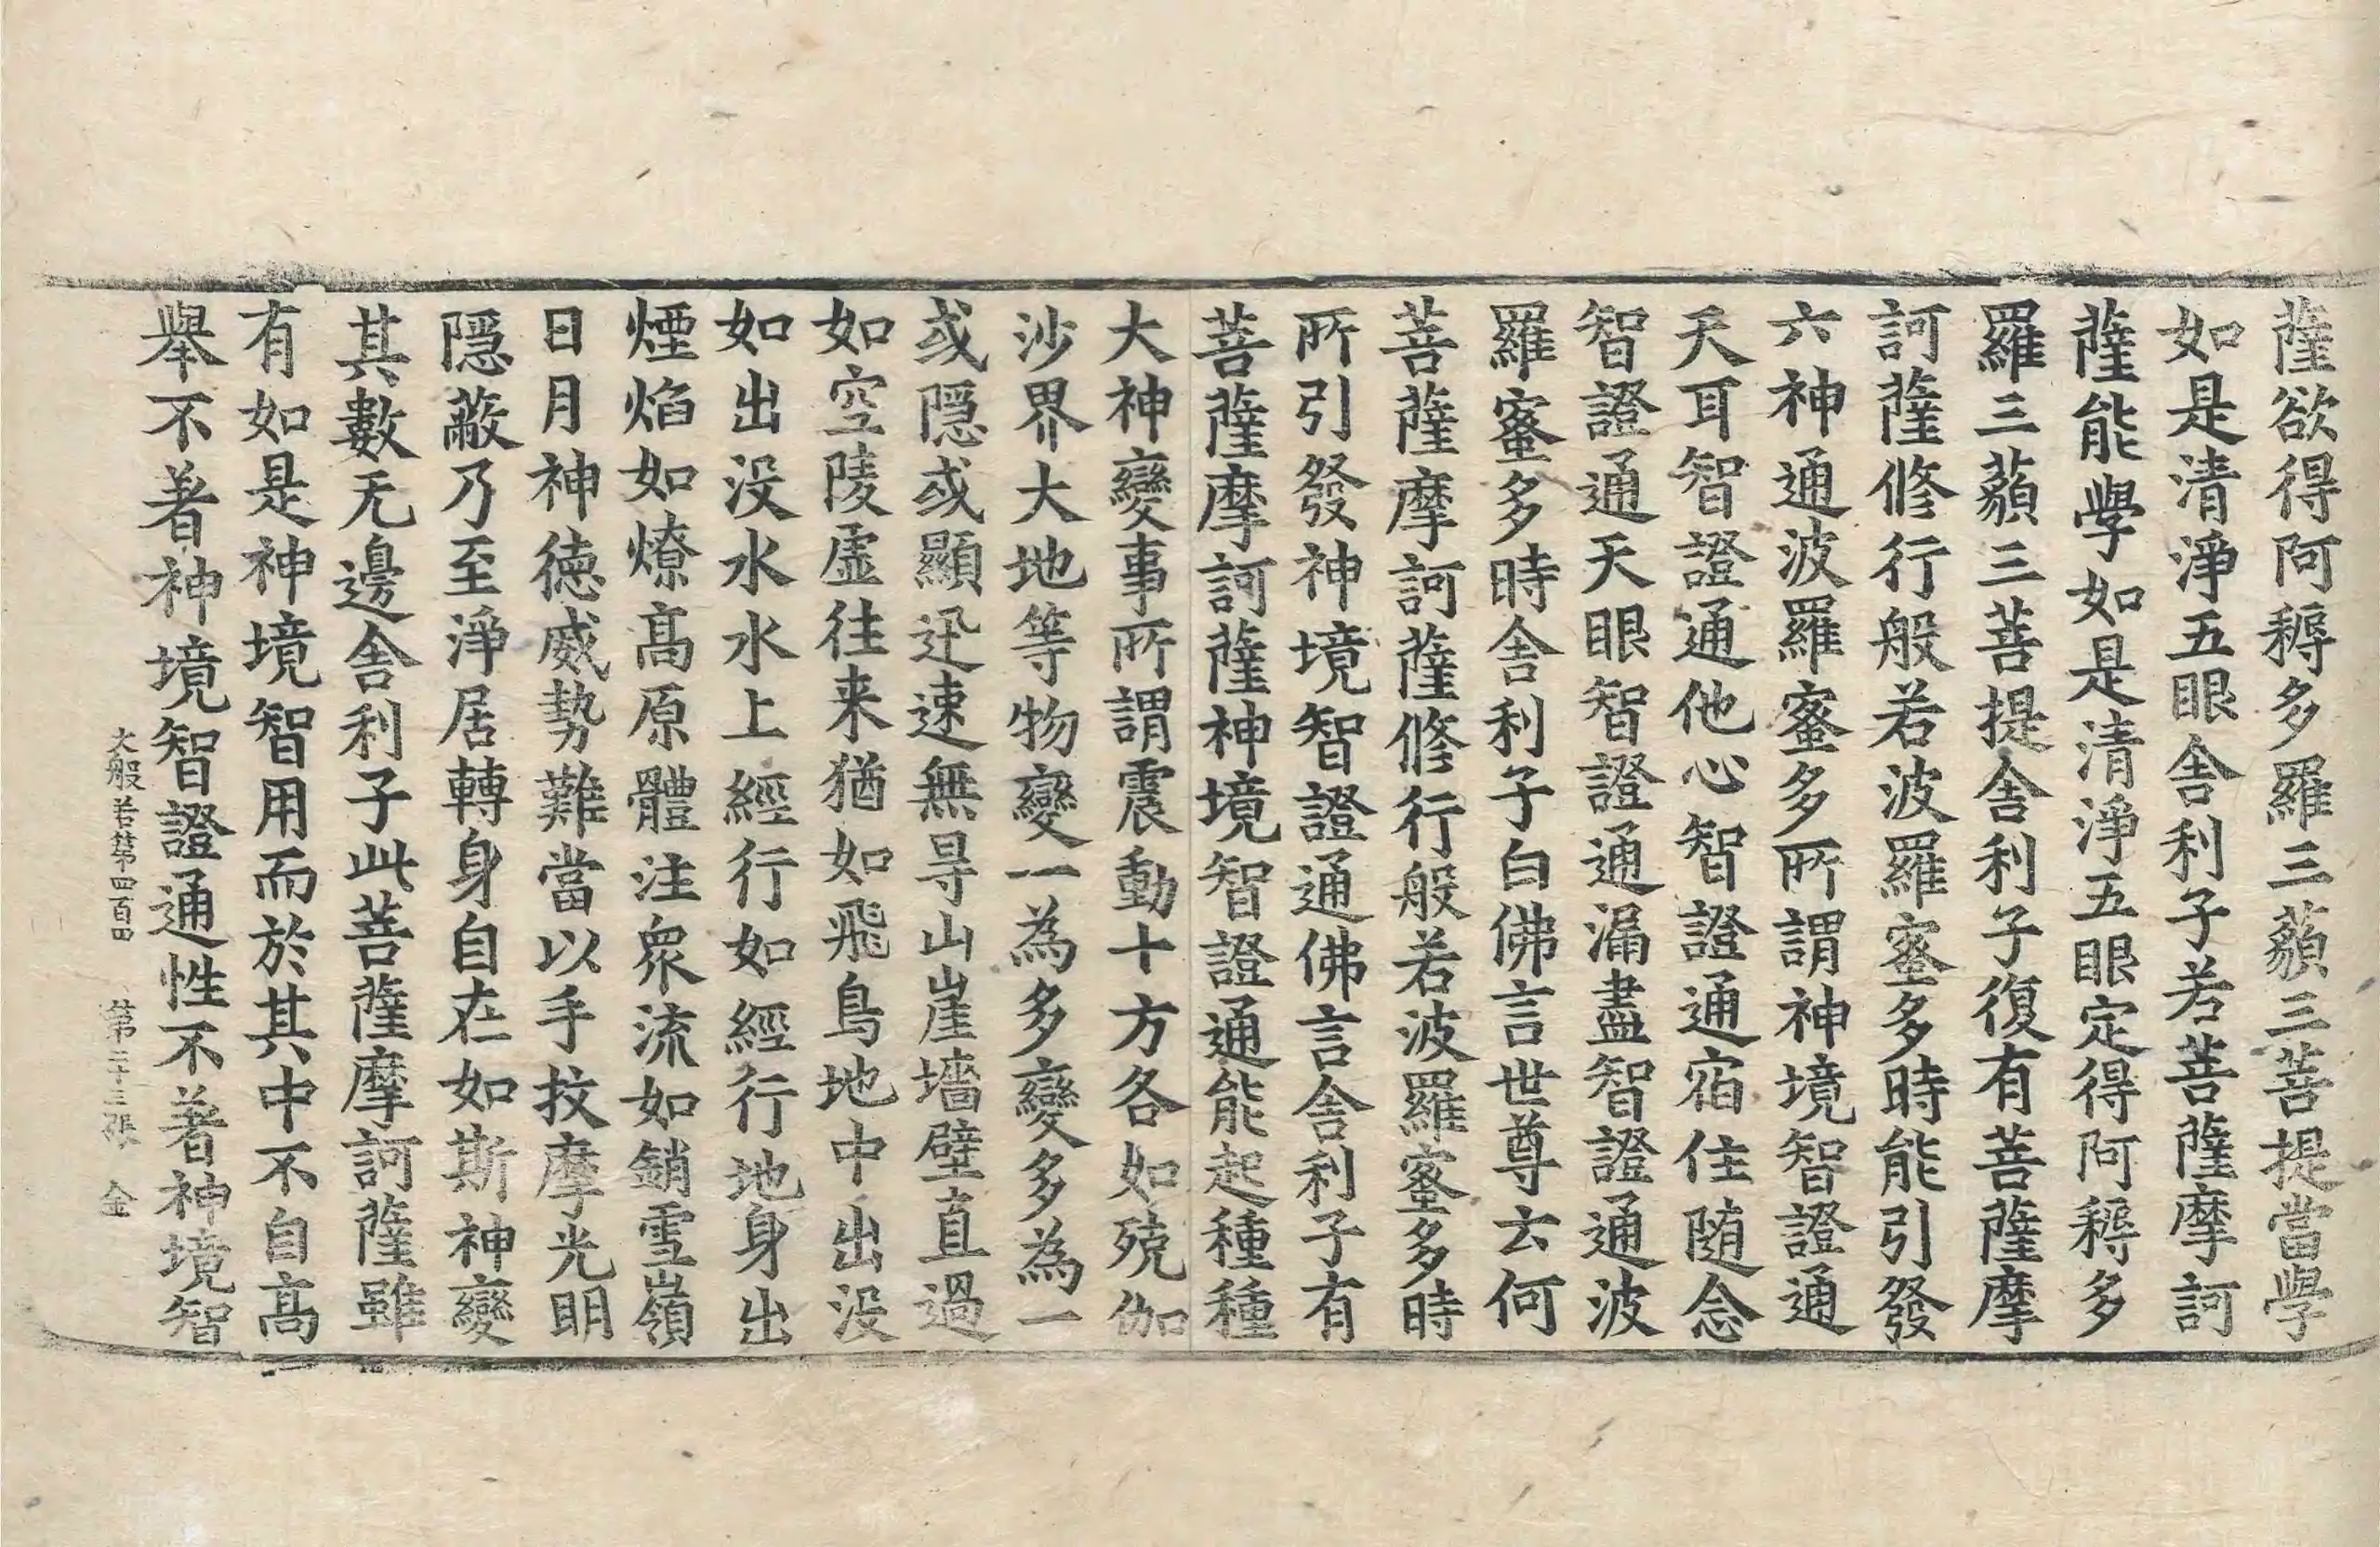 薩欲得阿耨多羅三藐三菩提當學
如是清淨五眼舍利子若菩薩摩訶
薩能學如是清淨五眼定得阿耨多
羅三藐三菩提舍利子復有菩薩摩
訶薩修行般若波羅蜜多時能引發
六神通波羅蜜多所謂神境智證通
天耳智證通他心智證通宿住隨念
智證通天眼智證通漏盡智證通波
羅蜜多時舍利子白佛言世尊云何
菩薩摩訶薩修行般若波羅蜜多時
所引發神境智證通佛言舍利子有
菩薩摩訶薩神境智證通能起種種
大神變事所謂震動十方各如殑伽
沙界大地等物變一為多變多為一
或隱或顯迅速無㝵山崖墻壁直過
如空陵虛往来猶如飛鳥地中出没
如出没水水上經行如經行地身出
煙焰如燎高原體注眾流如銷雪嶺
日月神德威勢難當以手抆摩光明
隱蔽乃至淨居轉身自在如斯神變
其數无邊舍利子此菩薩摩訶薩雖
有如是神境智用而於其中不自高
舉不著神境智證通性不著神境智
大般若第四百四 第二十三張 金